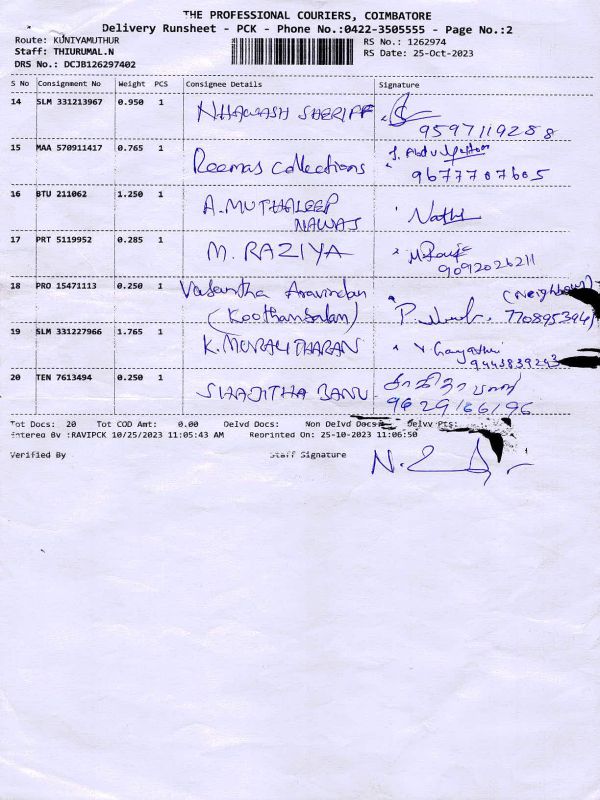 THE PROFESSIONAL COURIERS, COIMBATORE
Delivery Runsheet - PCK - Phone No.:0422-3505555 - Page No.:2
Route: KUNIYAMUTHUR
RS No.: 1262974
Staff: THIURUMAL.N
RS Date: 25-Oct-2023
DRS No.: DCJB126297402
S No Consignment No Weight PCS Consignee Details Signature
14 SLM 331213967 0.950 1 NHAWASH SHERIFF
9597119288
15 MAA 570911417 0.765 1 Reemas Collections J. Abdul
9677707605
16 BTU 211062 1.250 1 A.MUTHALEEP
NAWAS
17 PRT 5119952 0.285 1 M. RAZIYA
9092026211
18 PRO 15471113 0.250 1 Vasantha Aravindan (Neighbour)
(Koothambalam) 770895394
19 SLM 331227966 1.765 1 K. MURALITHARAN Gayathri
9443839243
20 TEN 7613494 0.250 1 SHAJITHA BANU
9629166196
Tot Docs: 20 Tot COD Amt: 0.00 Delvd Docs: Non Delvd Docs: Delvv Pts:
Entered By :RAVIPCK 10/25/2023 11:05:43 AM Reprinted On: 25-10-2023 11:06:50
Verified By Staff Signature